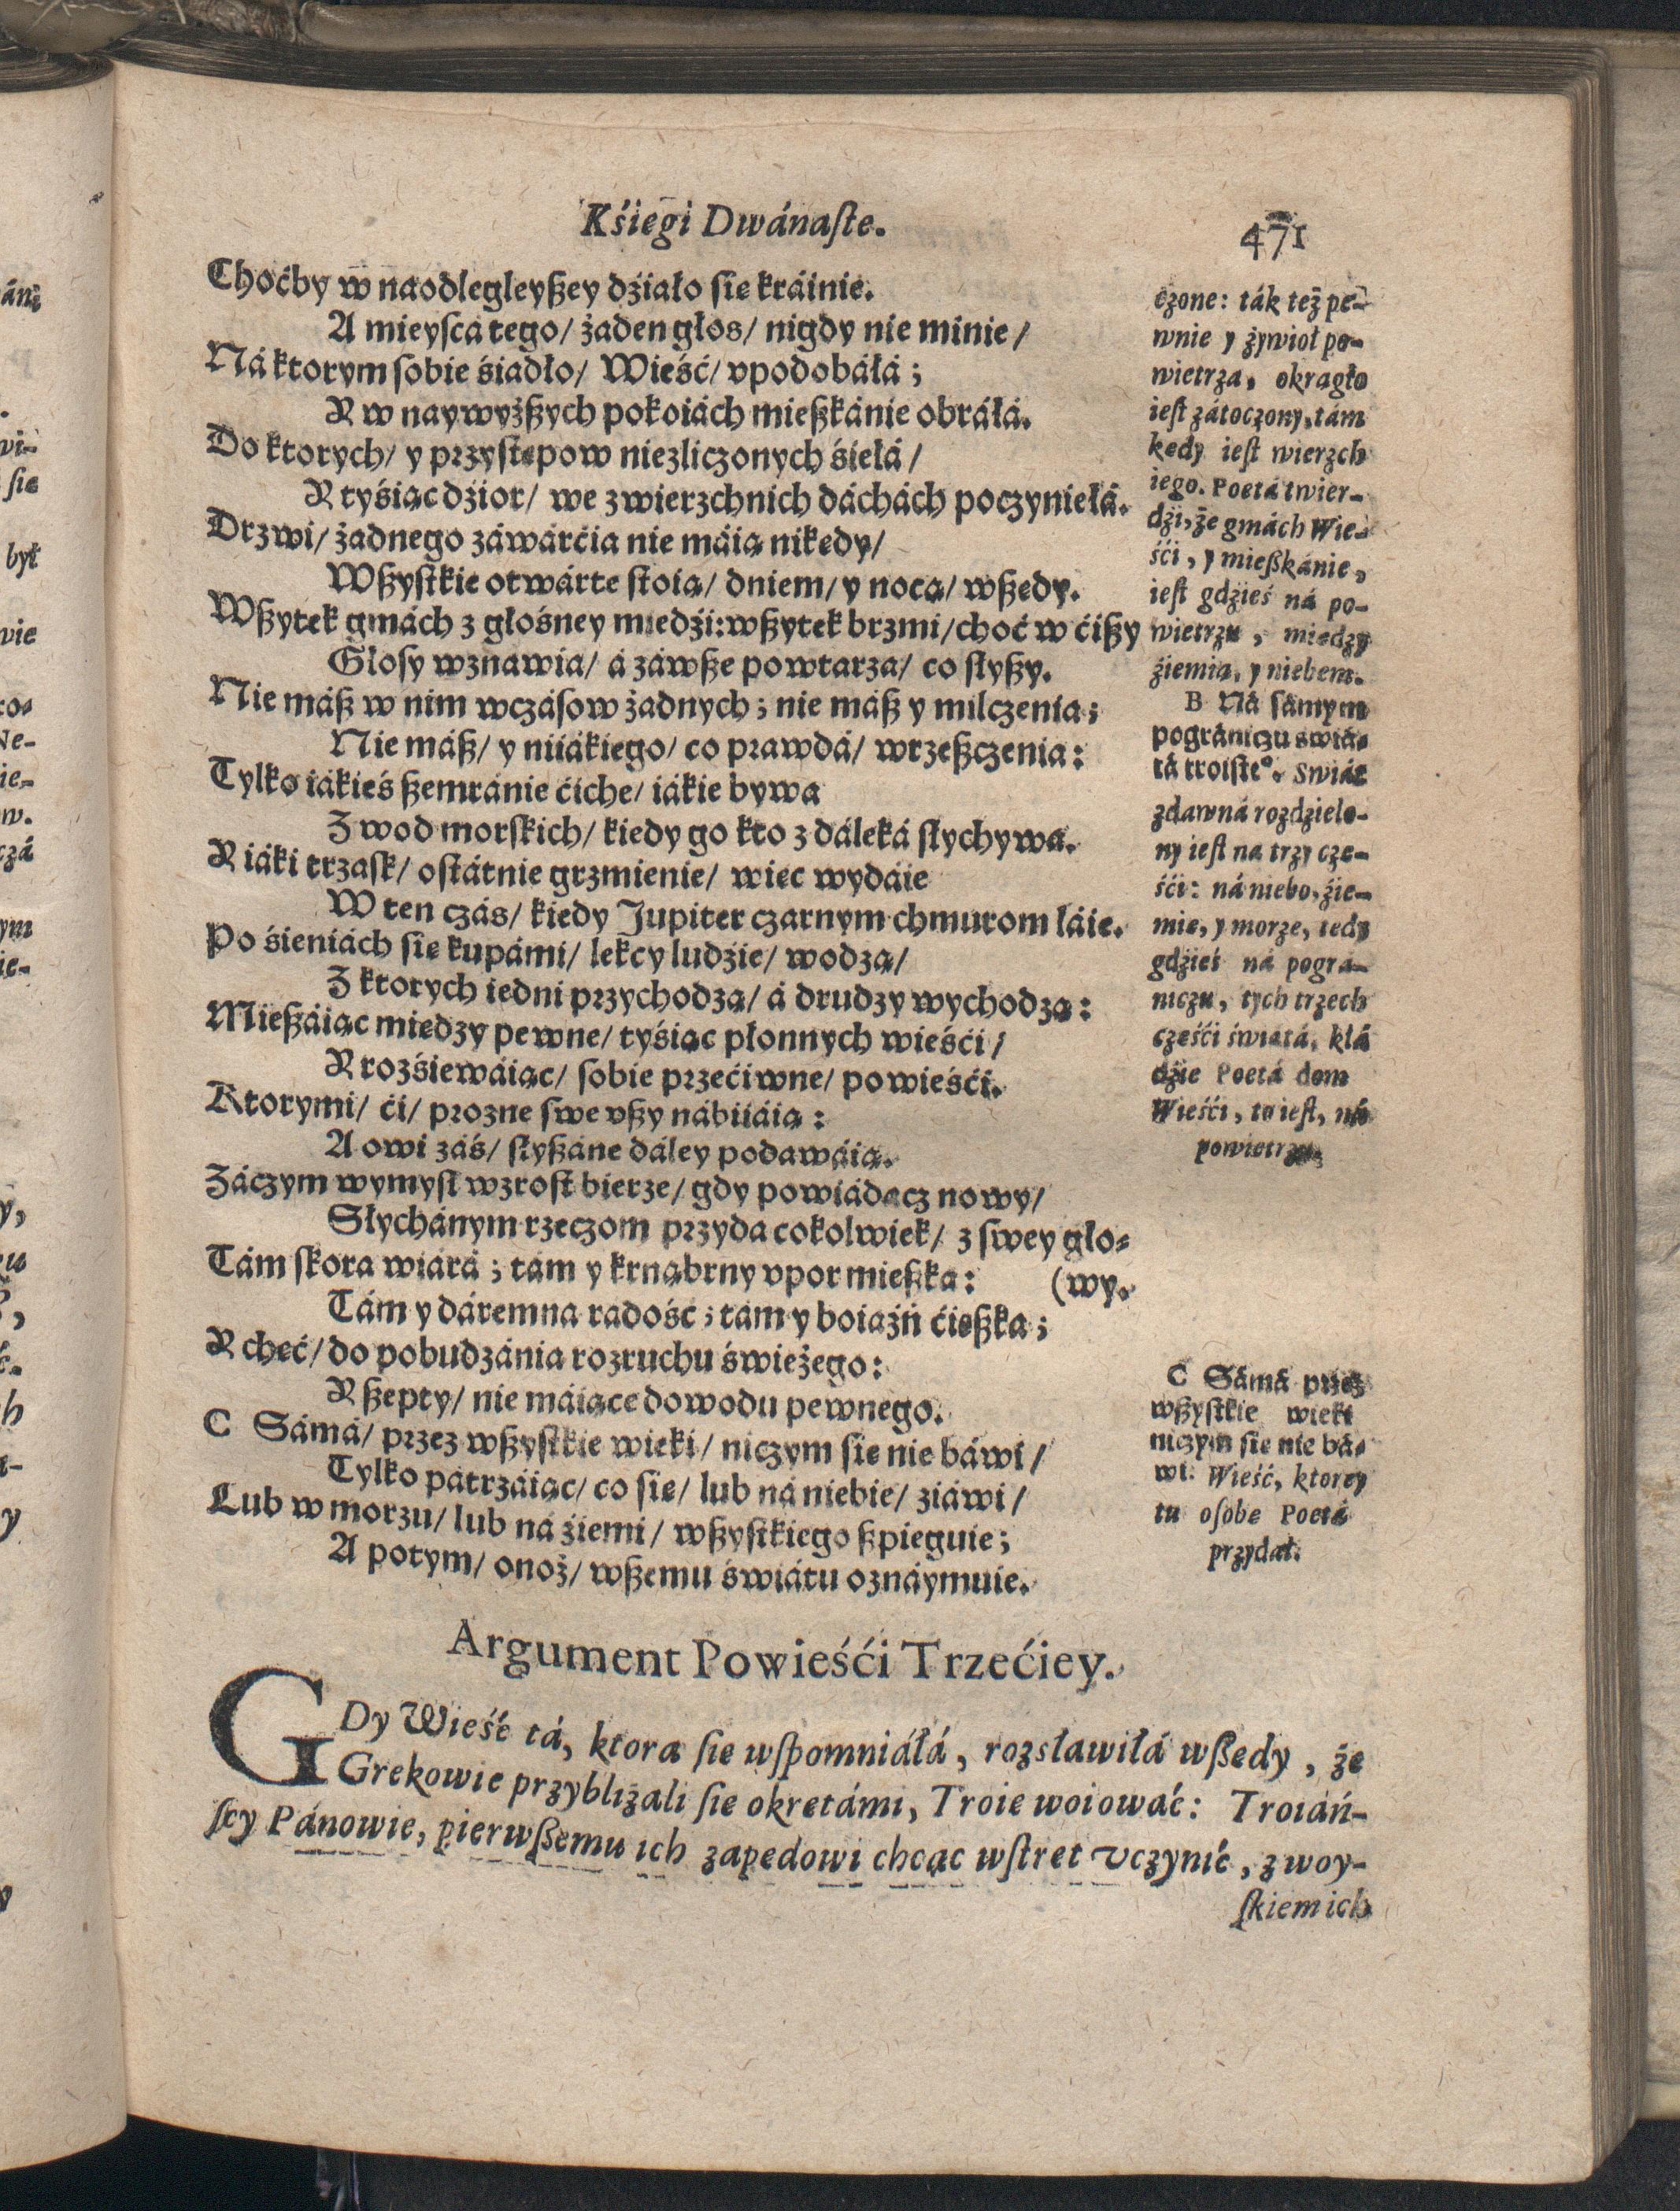 Kśięgi Dwánaste.
471
Choćby w naodlegleyszey dźiało się kráinie.
A mieyscá tego/ żaden głos/ nigdy nie minie/
Ná ktorym sobie śiadło/ Wieść/ vpodobáłá;
Y w naywyższych pokoiách mieszkánie obráłá.
Do ktorych/ y przystępow niezliczonych śiełá/
Y tyśiąc dźior/ we zwierzchnich dáchách poczyniełá.
Drzwi/ żadnego záwárćia nie máią nikędy/
Wszystkie otwárte stoią/ dniem/ y nocą/ wszędy.
Wszytek gmách z głośney miedźi: wszytek brzmi/ choć w ćiszy
Głosy wznawia/ á záwsze powtarza/ co słyszy.
Nie mász w nim wczásow żadnych; nie mász y milczenia;
Nie mász/ y niiákiego/ co prawdá/ wrzeszczenia:
Tylko iákieś szemránie ćiche/ iákie bywa
Z wod morskich/ kiedy go kto z dáleká słychywa.
Y iáki trzask/ ostátnie grzmienie/ więc wydáie
W ten czás/ kiedy Jupiter czarnym chmurom łáie.
Po śieniách się kupámi/ lekcy ludźie/ wodzą/
Z ktorych iedni przychodzą/ á drudzy wychodzą:
Mieszáiąc miedzy pewne/ tyśiąc płonnych wieśći/
Y rozśiewáiąc/ sobie przećiwne/ powieśći.
Ktorymi/ ći/ prozne swe vszy nábiiáią:
A owi záś/ słyszáne dáley podawáią.
Záczym wymysł wzrost bierze/ gdy powiádacz nowy/
Słychánym rzeczom przyda cokolwiek/ z swey gło-
Tám skora wiárá; tám y krnąbrny vpor mieszka: (wy.
Tám y dáremna radość; tám y boiaźń ćięszka;
Y chęć/ do pobudzánia rozruchu świeżego:
Y szepty/ nie máiące dowodu pewnego.
C Sámá/ przez wszystkie wieki/ niczym się nie báwi/
Tylko pátrzáiąc/ co się/ lub ná niebie/ ziáwi/
Lub w morzu/ lub ná źiemi/ wszystkiego szpieguie;
A potym/ onoż/ wszemu świátu oznáymuie.
czone: ták też pe-
wnie y żywioł po-
wietrza, okrągło
iest zátoczony, tám
kędy iest wierzch
iego. Poetá twier-
dźi, że gmách Wie-
śći, y mieszkánie,
iest gdźieś ná po-
wietrzu, miedzy
źiemią, y niebem.
B Ná sámym
pográniczu świá-
tá troiste°. Swiát
zdawná rozdzielo-
ny iest na trzy czę-
śći: ná niebo, źie-
mię, y morze, tedy
gdźieś ná pográ-
niczu, tych trzech
cześći świátá, kłá
dźie Poetá dom
Wieśći, to iest, ná
powietrzu.
C Sámá przez
wszystkie wieki
niczym się nie bá-
wi. Wieść, ktorey
tu osobę Poetá
przydał.
Argument Powieśći Trzećiey.
GDy Wieść tá, ktora się wspomniáłá, rozsławiłá wszędy, że
Grekowie przybliżali się okrętámi, Troię woiowáć: Troiáń-
scy Pánowie, pierwszemu ich zapędowi chcąc wstręt vczynić, z woy-
skiem ich